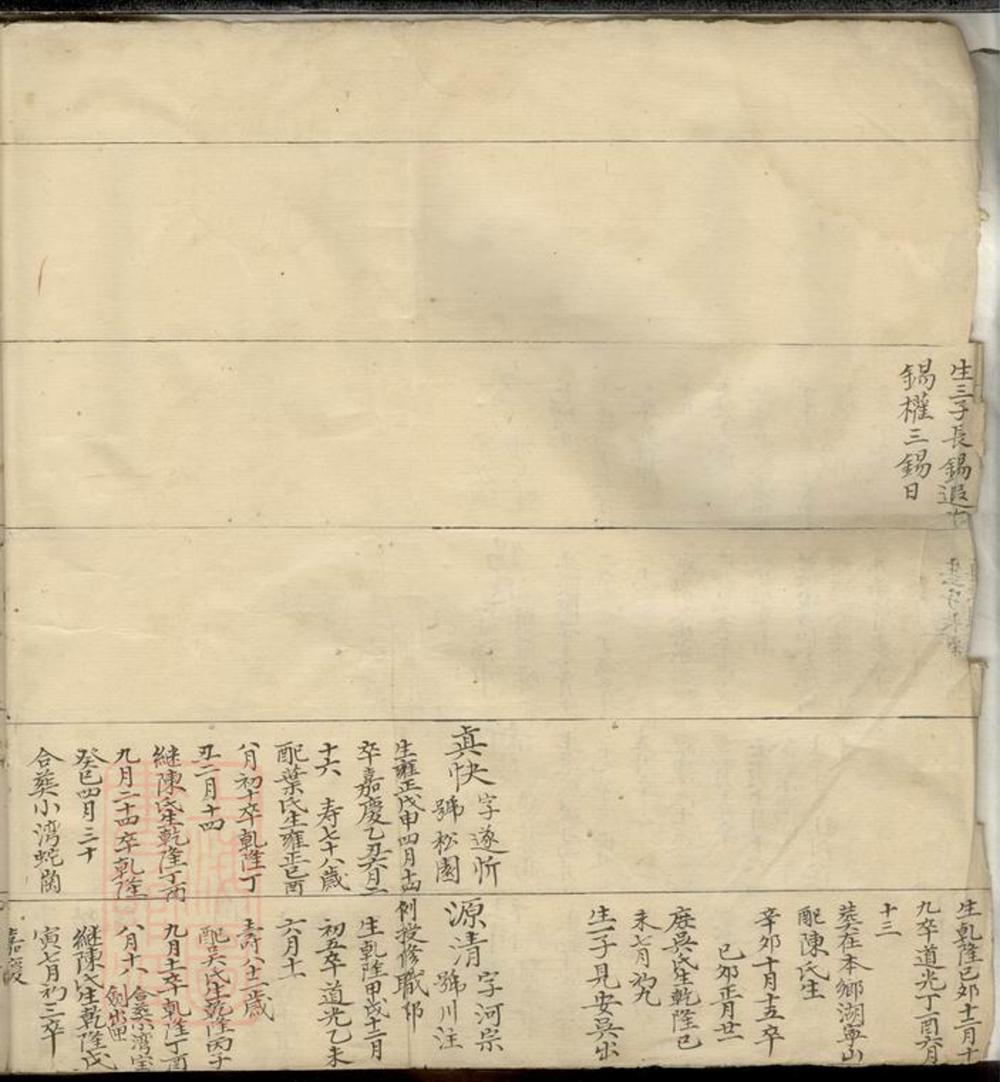 生三子長錫遐
錫權三錫日
真快字遂忻
號松園
生雍正戊申四月十四
卒嘉慶乙丑六月二
十六 寿七十八歲
配葉氏生雍正己酉
八月初十卒乾隆丁
丑二月十四
継陳氏生乾隆丁酉
九月二十四卒乾隆
癸巳四月三十
合葬小湾蛇崗
生乾隆己卯十二月十
九卒道光丁酉六月
十三
葬在本鄉湖寧山
配陳氏生
辛卯十月十五卒
己卯正月廿一
庶吳氏生乾隆己
未七月初九
生一子見安吳出
源清字河宗
號川注
例授修職郎
生乾隆甲戌十二月
初五卒道光乙未
六月十一
壽八十二歲
配吳氏生乾隆丙子
九月十二卒乾隆丁酉
八月十八 合葬小湾
継陳氏生乾隆戊
寅七月初三卒
嘉慶